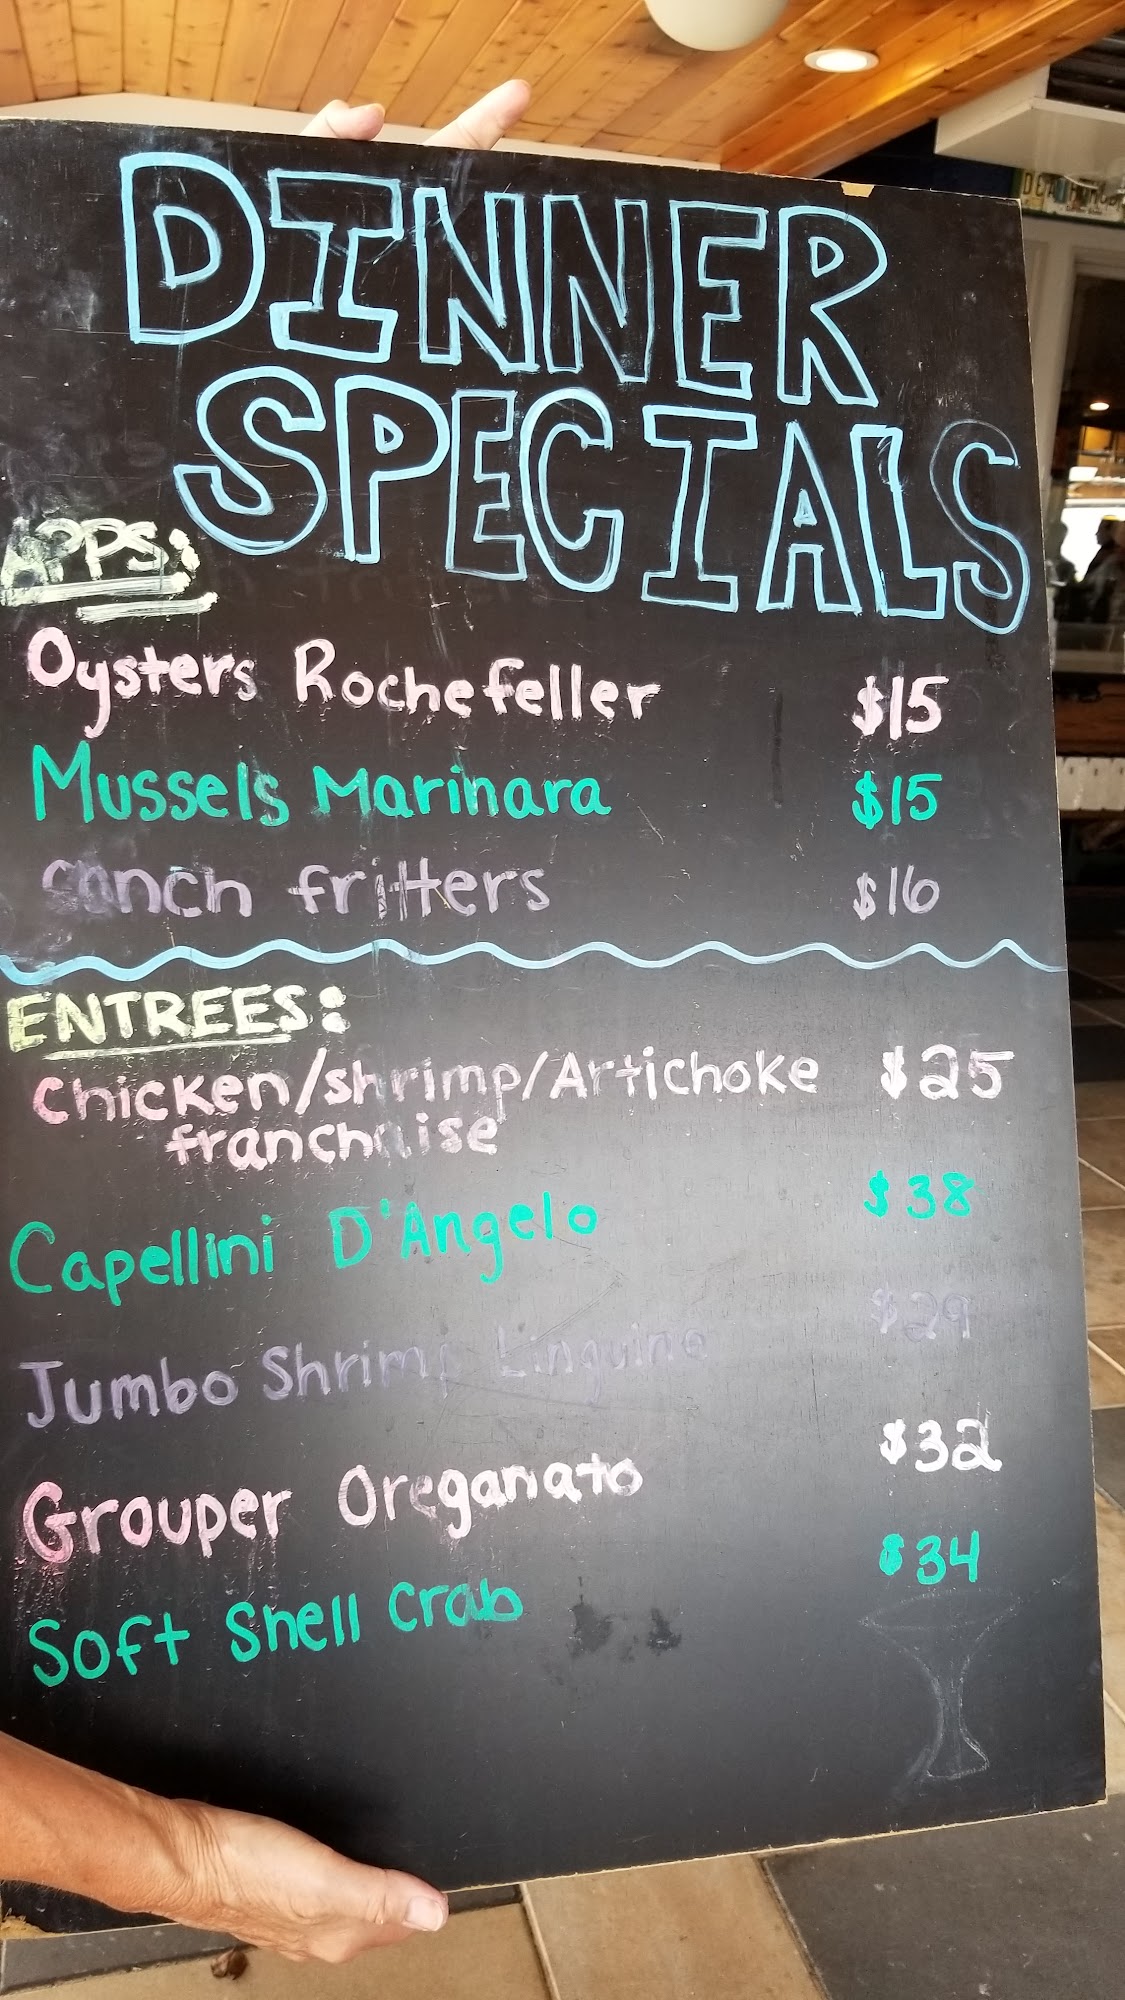 DINNER
SPECIALS
APPS:
Oysters Rochefeller $15
Mussels Marinara $15
conch fritters $16
ENTREES:
Chicken/shrimp/Artichoke $25
franchaise
Capellini D'Angelo $38
Jumbo Shrimp Linguine $29
Grouper Oreganato $32
Soft Shell Crab $34